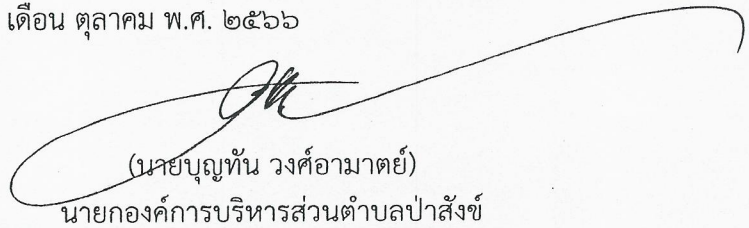 เดือน ตุลาคม พ.ศ. ๒๕๖๖
(นายบุญทัน วงศ์อามาตย์)
นายกองค์การบริหารส่วนตำบลป่าสังข์